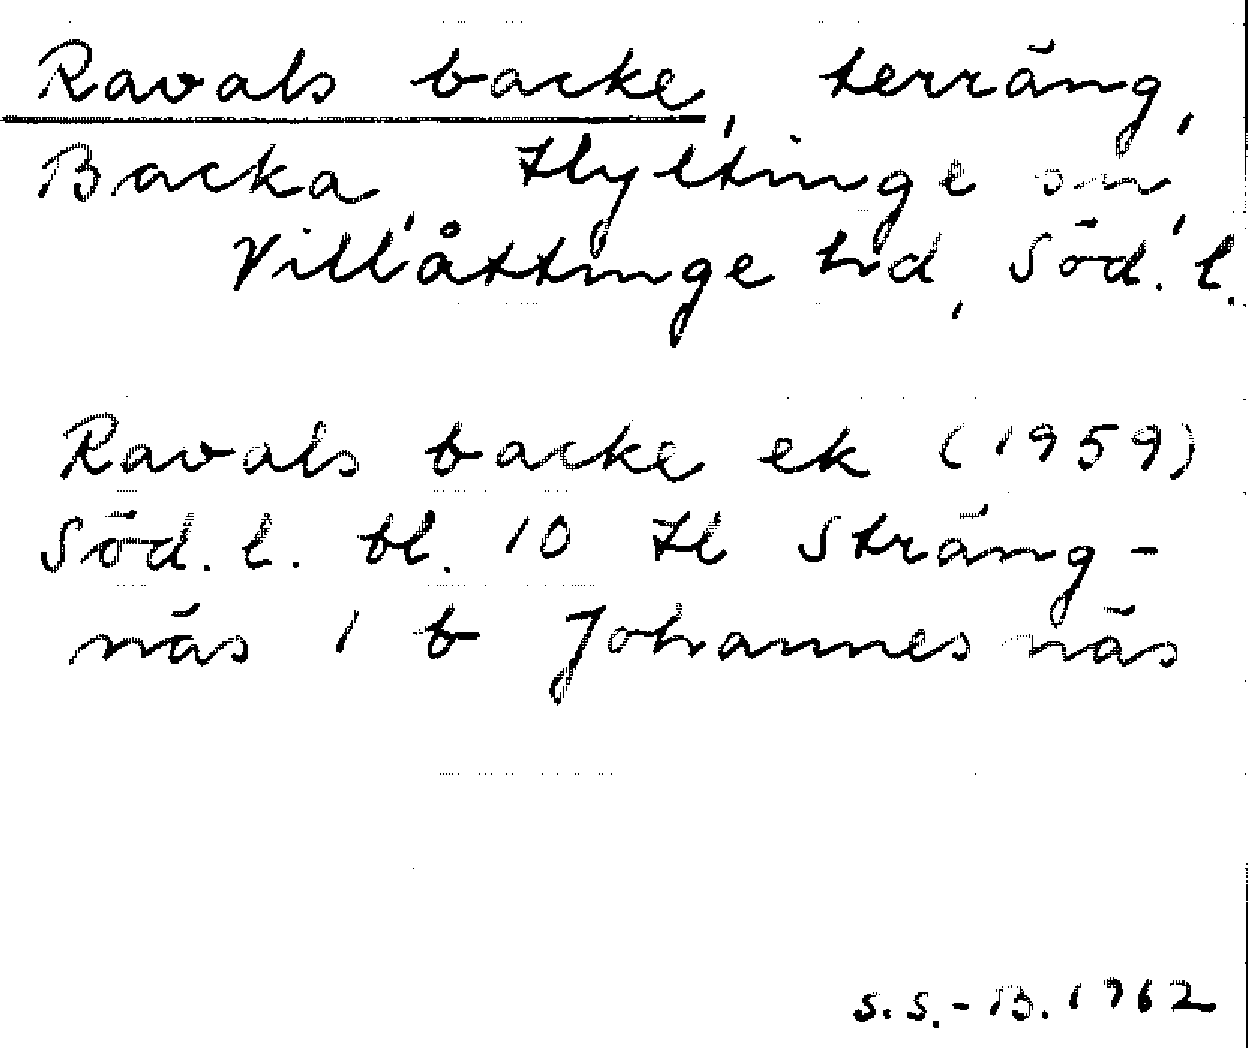 Ravals backe, terräng,
Backa, Hyltinge sn,
Villåttinge hd, Söd. l.
Ravals backe ek (1959)
Söd. l. bl. 10 tl Sträng-
näs 1 b Johannesnäs
S.S.-B. 1962